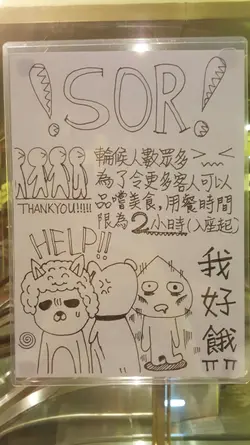 !SOR!
輪候人數眾多~
為了令更多客人可以
品嚐美食,用餐時間
限為2小時(入座起)
THANKYOU!!!!!
HELP!!
我好餓